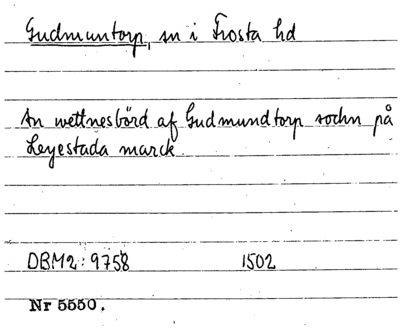 Gudmuntorp, sn i Frosta hd
An wettnesbörd af Gudmundtorp sochn på
Leyestada marck
DBM2: 9758 1502
Nr 5550.